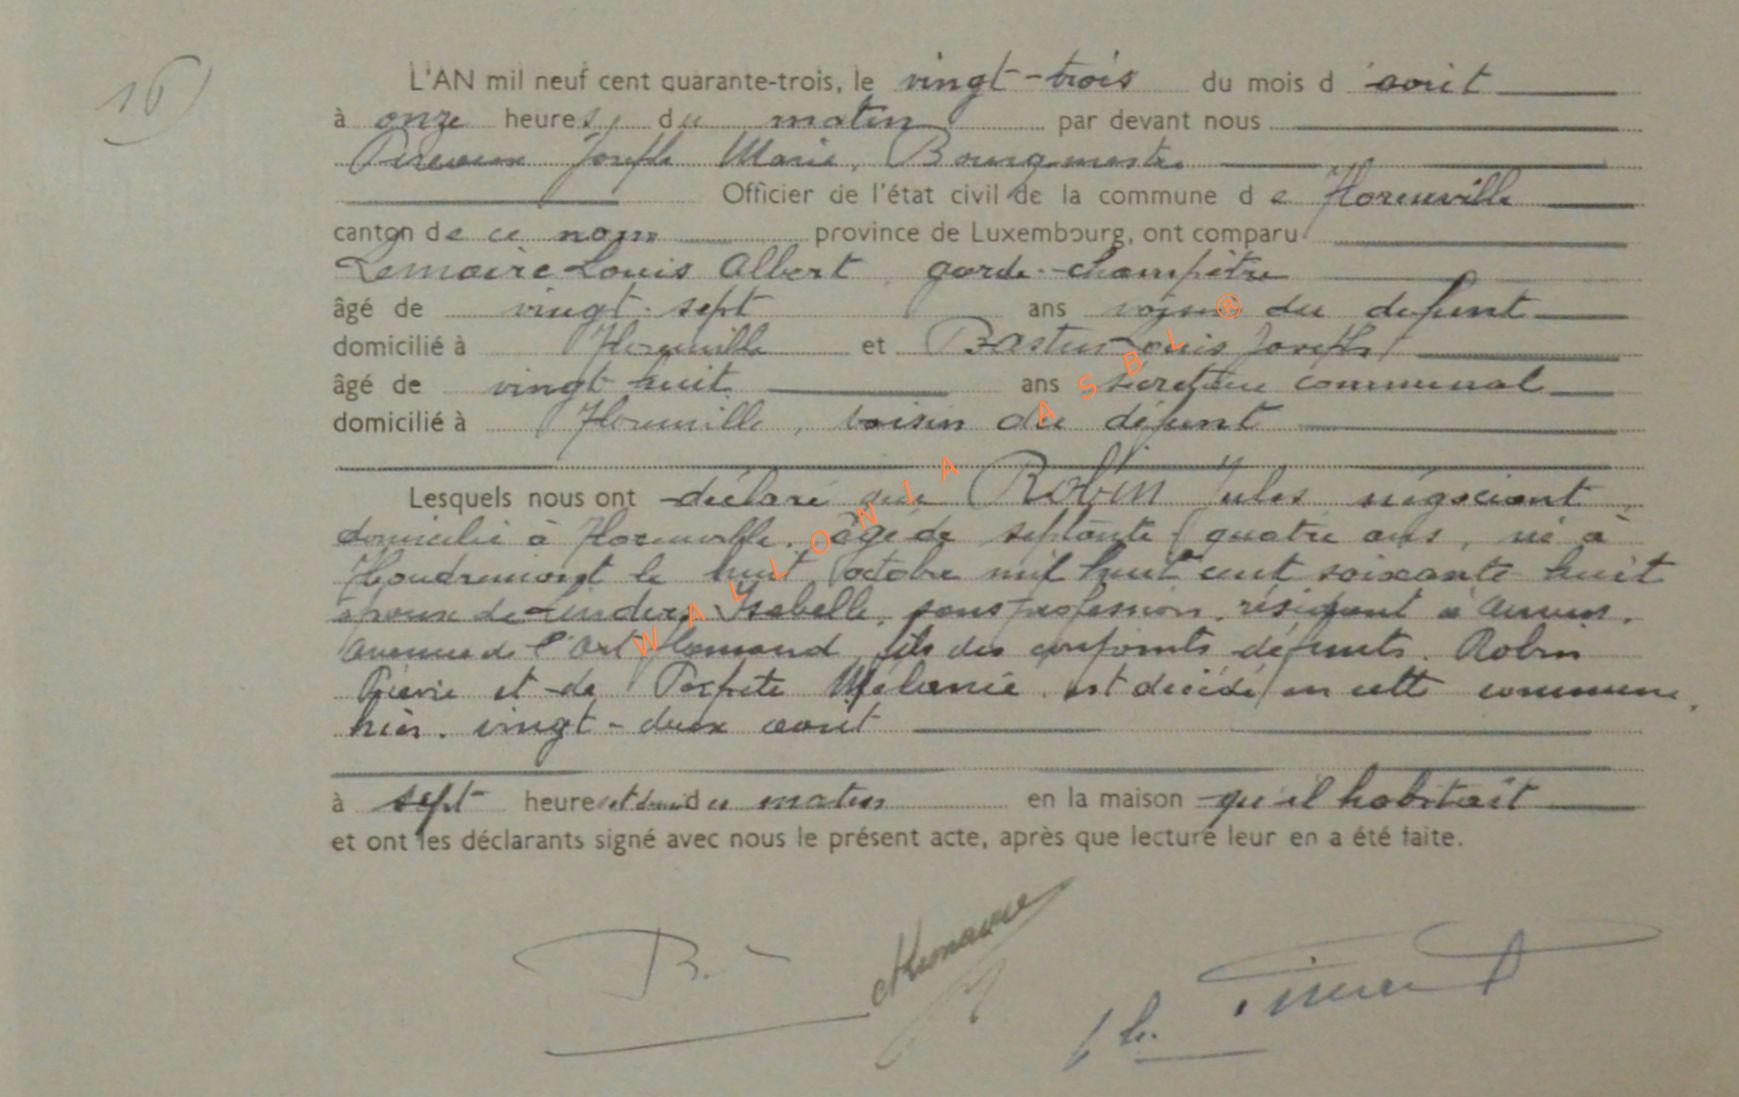 16)
L'AN mil neuf cent quarante-trois, le vingt-trois du mois d'août
à onze heures, du matin par devant nous
Joseph Marie, Bourgmestre
Officier de l'état civil de la commune de Florenville
canton de ce nom province de Luxembourg, ont comparu
Lemaire Louis Albert, garde-champêtre
âgé de vingt-sept ans voisin du défunt
domicilié à Florenville et Bastin Louis Joseph
âgé de vingt huit ans secrétaire communal
domicilié à Florenville, voisin du défunt
Lesquels nous ont déclaré que Robin Jules négociant
domicilié à Florenville, âgé de septante quatre ans, né à
Houdremont le huit octobre mil huit cent soixante huit
époux de Linders Isabelle, sans profession, résidant à Anvers,
avenue de l'Art flamand, fils des conjoints défunts, Robin
et de Mélanie est décédé en cette commune,
hier, vingt-deux août
à sept heures et demi du matin en la maison qu'il habitait
et ont les déclarants signé avec nous le présent acte, après que lecture leur en a été faite.
WALLONIA ASBL ®